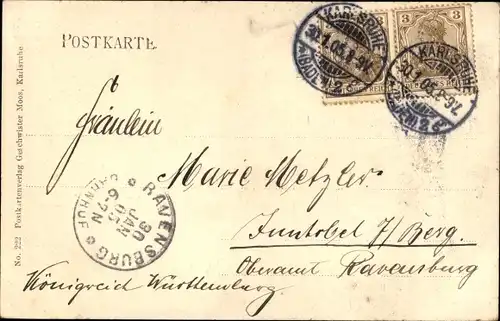 POSTKARTE
3
3
KARLSRUHE
30.1.05.8-9V.
KARLSRUHE
30.1.05.8-9V.
Fräulein
Marie Metzler
RAVENSBURG
BAHNHOF
30
JAN
05
6-7N
Berg.
Oberamt Ravensburg
Königreich Württemberg
No. 222 Postkartenverlag Geschwister Moos, Karlsruhe